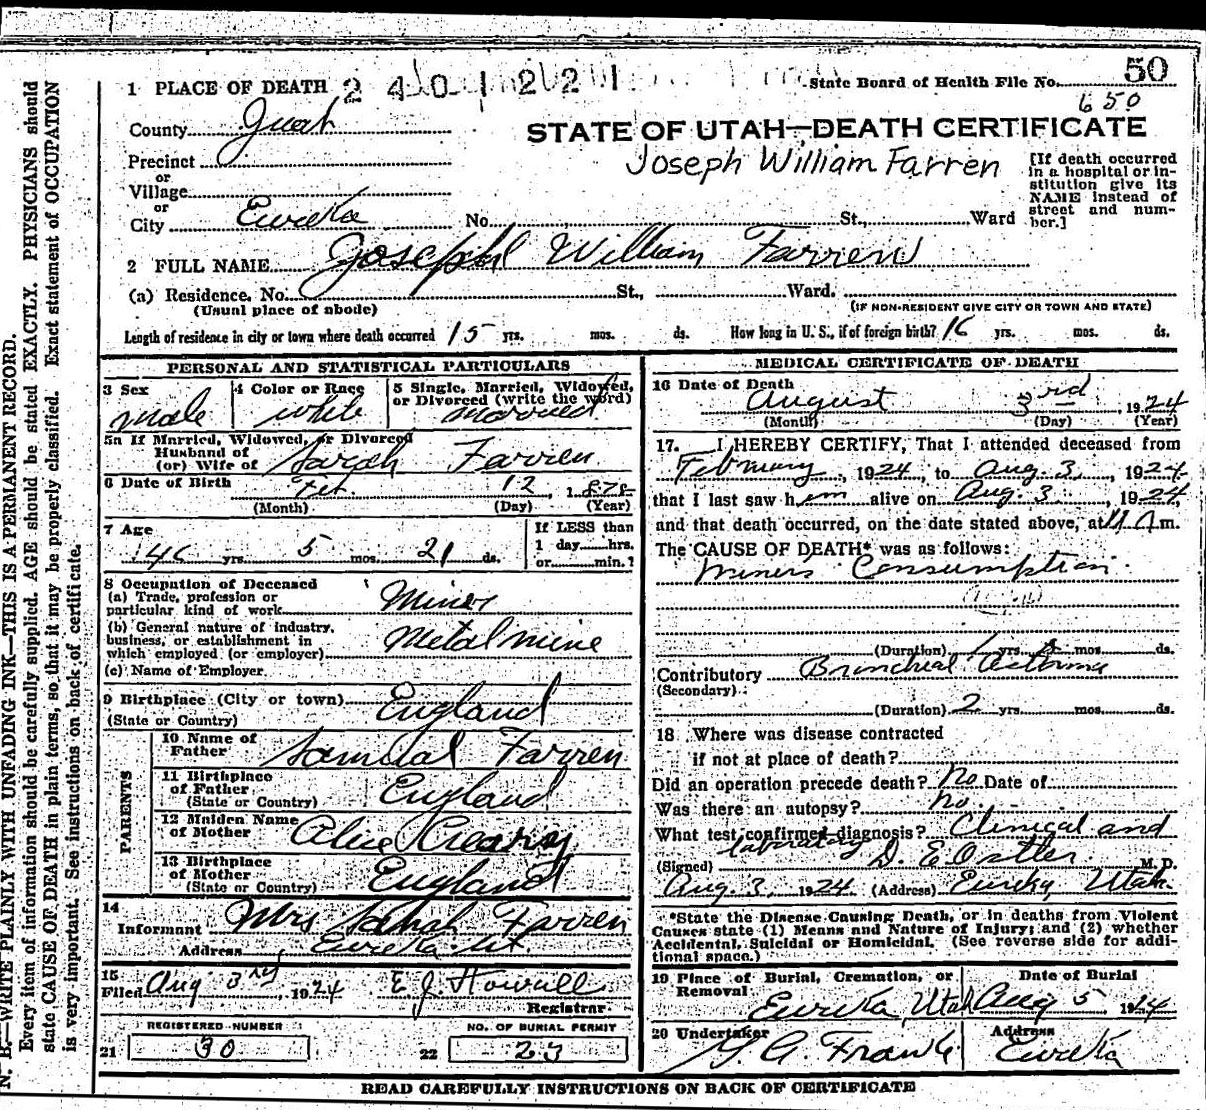 50
State Board of Health File No.
650
1 PLACE OF DEATH 2401221
County Juab
STATE OF UTAH—DEATH CERTIFICATE
Joseph William Farren
Precinct
or
Village
or
City Eureka No. St., Ward
[If death occurred
in a hospital or in-
stitution give its
NAME instead of
street and num-
ber.]
2 FULL NAME Joseph William Farren
(a) Residence. No. St., Ward.
(Usual place of abode) (IF NON-RESIDENT GIVE CITY OR TOWN AND STATE)
Length of residence in city or town where death occurred 15 yrs. mos. ds. How long in U. S., if of foreign birth? 16 yrs. mos. ds.
PERSONAL AND STATISTICAL PARTICULARS
3 Sex
male
4 Color or Race
white
5 Single, Married, Widowed,
or Divorced (write the word)
married
5a If Married, Widowed, or Divorced
Husband of
(or) Wife of Sarah Farren
6 Date of Birth Feb. 12, 1878
(Month) (Day) (Year)
7 Age
46 yrs. 5 mos. 21 ds.
If LESS than
1 day hrs.
or min.?
8 Occupation of Deceased
(a) Trade, profession or
particular kind of work Miner
(b) General nature of industry,
business, or establishment in
which employed (or employer) Metal mine
(c) Name of Employer
9 Birthplace (City or town) England
(State or Country)
PARENTS
10 Name of
Father Samual Farren
11 Birthplace
of Father England
(State or Country)
12 Maiden Name
of Mother Alice
13 Birthplace
of Mother England
(State or Country)
14
Informant Mrs Sarah Farren
Address Eureka Ut
15
Filed Aug 3rd, 1924 E J. Howell
Registrar
REGISTERED NUMBER
21 30
NO. OF BURIAL PERMIT
22 23
MEDICAL CERTIFICATE OF DEATH
16 Date of Death
August 3rd, 1924
(Month) (Day) (Year)
17. I HEREBY CERTIFY, That I attended deceased from
February, 1924, to Aug. 3, 1924
that I last saw him alive on Aug. 3, 1924,
and that death occurred, on the date stated above, at 11 A m.
The CAUSE OF DEATH* was as follows:
Miners Consumption
(Duration) 1 yrs. mos. ds.
Contributory Bronchial Asthma
(Secondary)
(Duration) 2 yrs. mos. ds.
18 Where was disease contracted
if not at place of death?
Did an operation precede death? No Date of
Was there an autopsy? No
What test confirmed diagnosis? Clinical and
laboratory
(Signed) D. E Ostler M. D.
Aug. 3, 1924 (Address) Eureka, Utah
*State the Disease Causing Death, or in deaths from Violent
Causes state (1) Means and Nature of Injury; and (2) whether
Accidental, Suicidal or Homicidal. (See reverse side for addi-
tional space.)
19 Place of Burial, Cremation, or
Removal
Eureka, Utah
Date of Burial
Aug 5 1924
20 Undertaker
G. A. Franke
Address
Eureka
READ CAREFULLY INSTRUCTIONS ON BACK OF CERTIFICATE
N. B.—WRITE PLAINLY WITH UNFADING INK—THIS IS A PERMANENT RECORD.
Every item of information should be carefully supplied. AGE should be stated EXACTLY. PHYSICIANS should
state CAUSE OF DEATH in plain terms, so that it may be properly classified. Exact statement of OCCUPATION
is very important. See instructions on back of certificate.